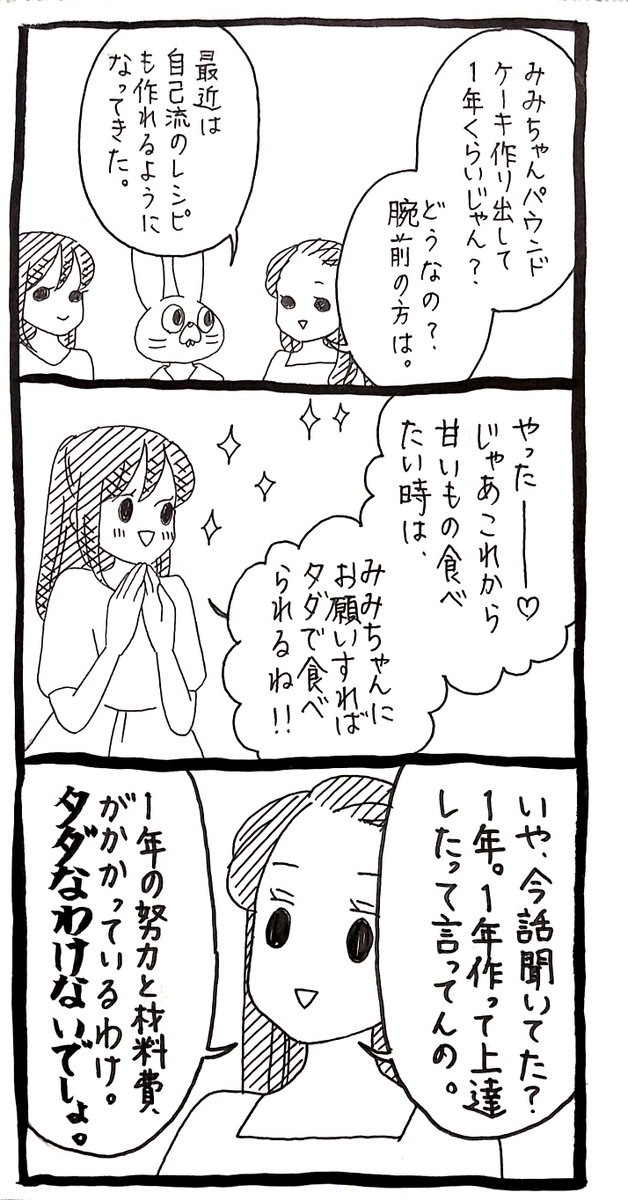 みみちゃんパウンド
ケーキ作り出して
1年くらいじゃん?
どうなの?
腕前の方は。
最近は
自己流のレシピ
も作れるように
なってきた。
やったー♡
じゃあこれから
甘いもの食べ
たい時は、
みみちゃんに
お願いすれば
タダで食べ
られるね!!
いや、今話聞いてた?
1年。1年作って上達
したって言ってんの。
1年の努力と材料費、
がかかっているわけ。
タダなわけないでしょ。